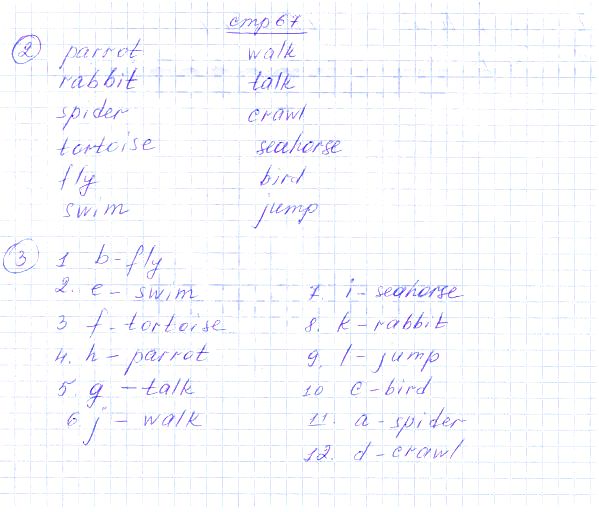 стр 67
2 parrot walk
rabbit talk
spider crawl
tortoise seahorse
fly bird
swim jump
3 1 b - fly
2. e - swim 7. i - seahorse
3 f - tortoise 8. k - rabbit
4. h - parrot 9. l - jump
5. g - talk 10 c - bird
6. j - walk 11. a - spider
12. d - crawl